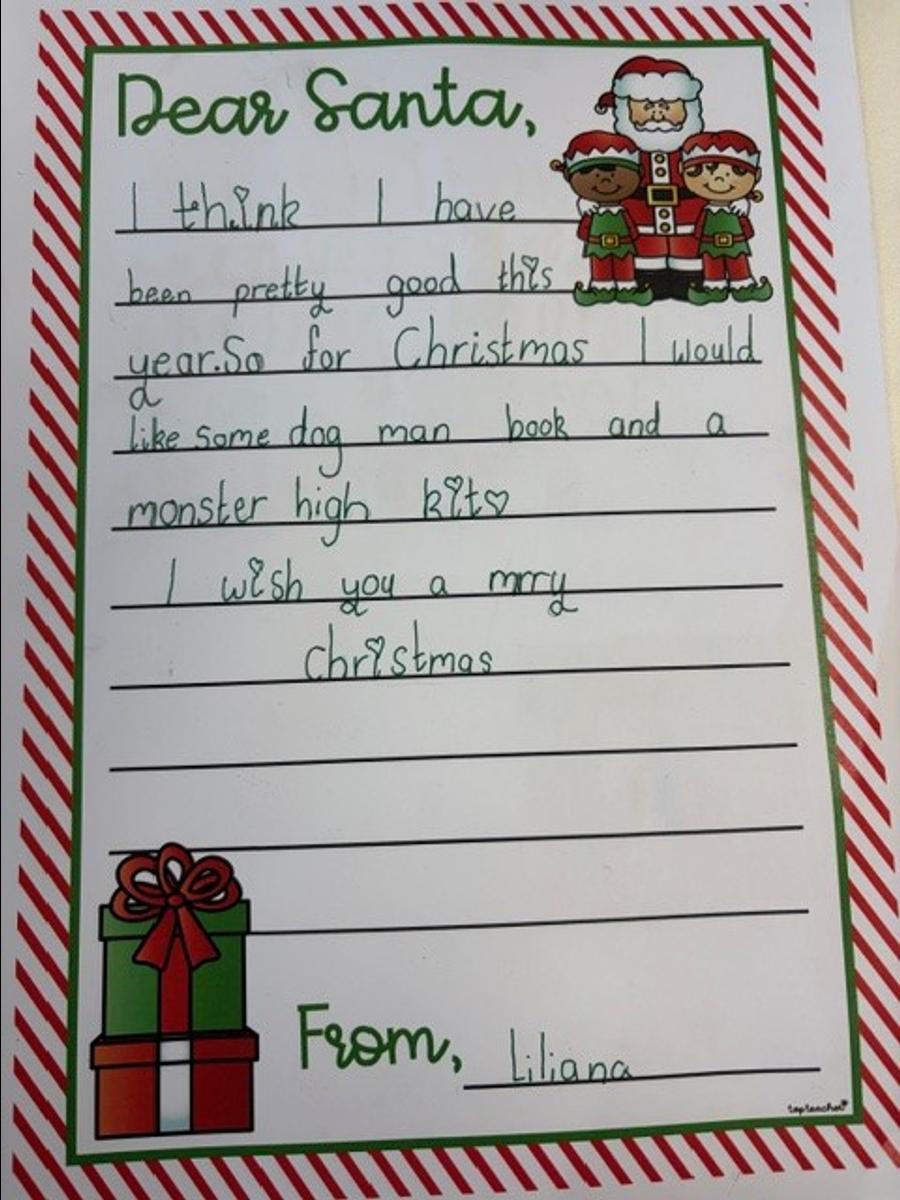 Dear Santa,
I think I have
been pretty good this
year.So for Christmas I would
like some dog man book and a
monster high kit♡
I wish you a mrry
christmas
From, Liliana
topteacher